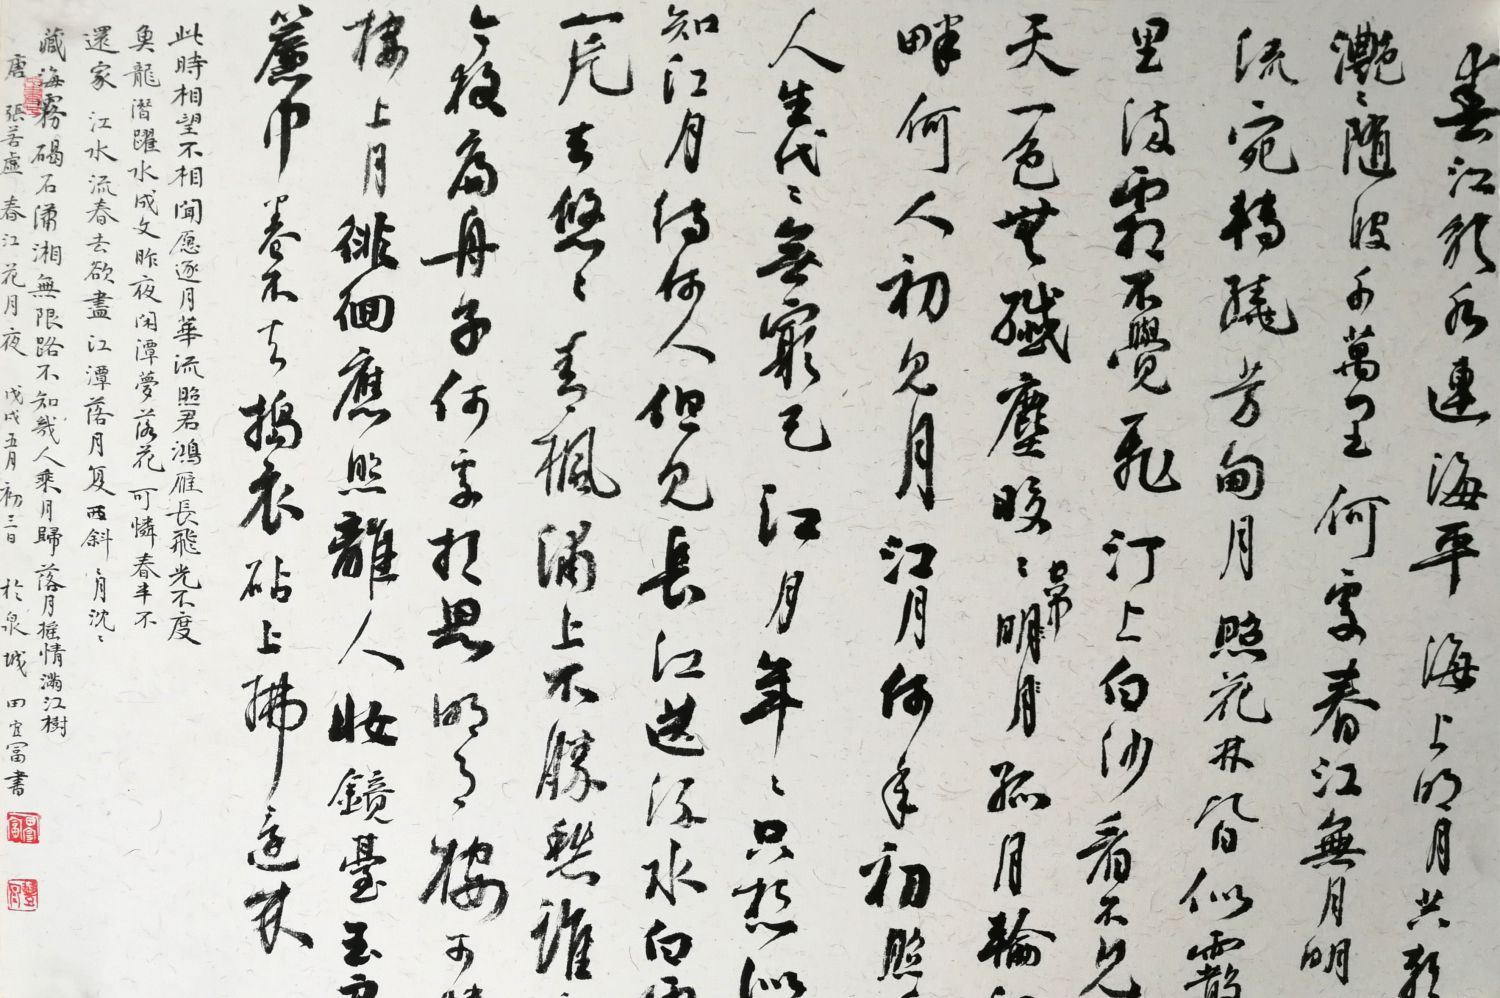 春江潮水連海平海上明月共潮
灔〻隨波千萬里何處春江無月明
流宛轉繞芳甸月照花林皆似霰
里流霜不覺飛汀上白沙看不見
天一色無纖塵皎〻明月孤月輪
常
畔何人初見月江月何年初照
人生代〻無窮已江月年〻只想似
知江月待何人但見長江送流水白雲
一片去悠〻青楓浦上不勝愁誰
今夜扁舟子何處相思明月樓可憐
樓上月徘徊應照離人妝鏡臺玉戶
簾中卷不去搗衣砧上拂還來
此時相望不相聞愿逐月華流照君鴻雁長飛光不度
魚龍潛躍水成文昨夜閑潭夢落花可憐春半不
還家江水流春去欲盡江潭落月復西斜斜月沈〻
藏海霧碣石瀟湘無限路不知幾人乘月歸落月搖情滿江樹
唐張若虛春江花月夜戊戌五月初三日於泉城田宜富書